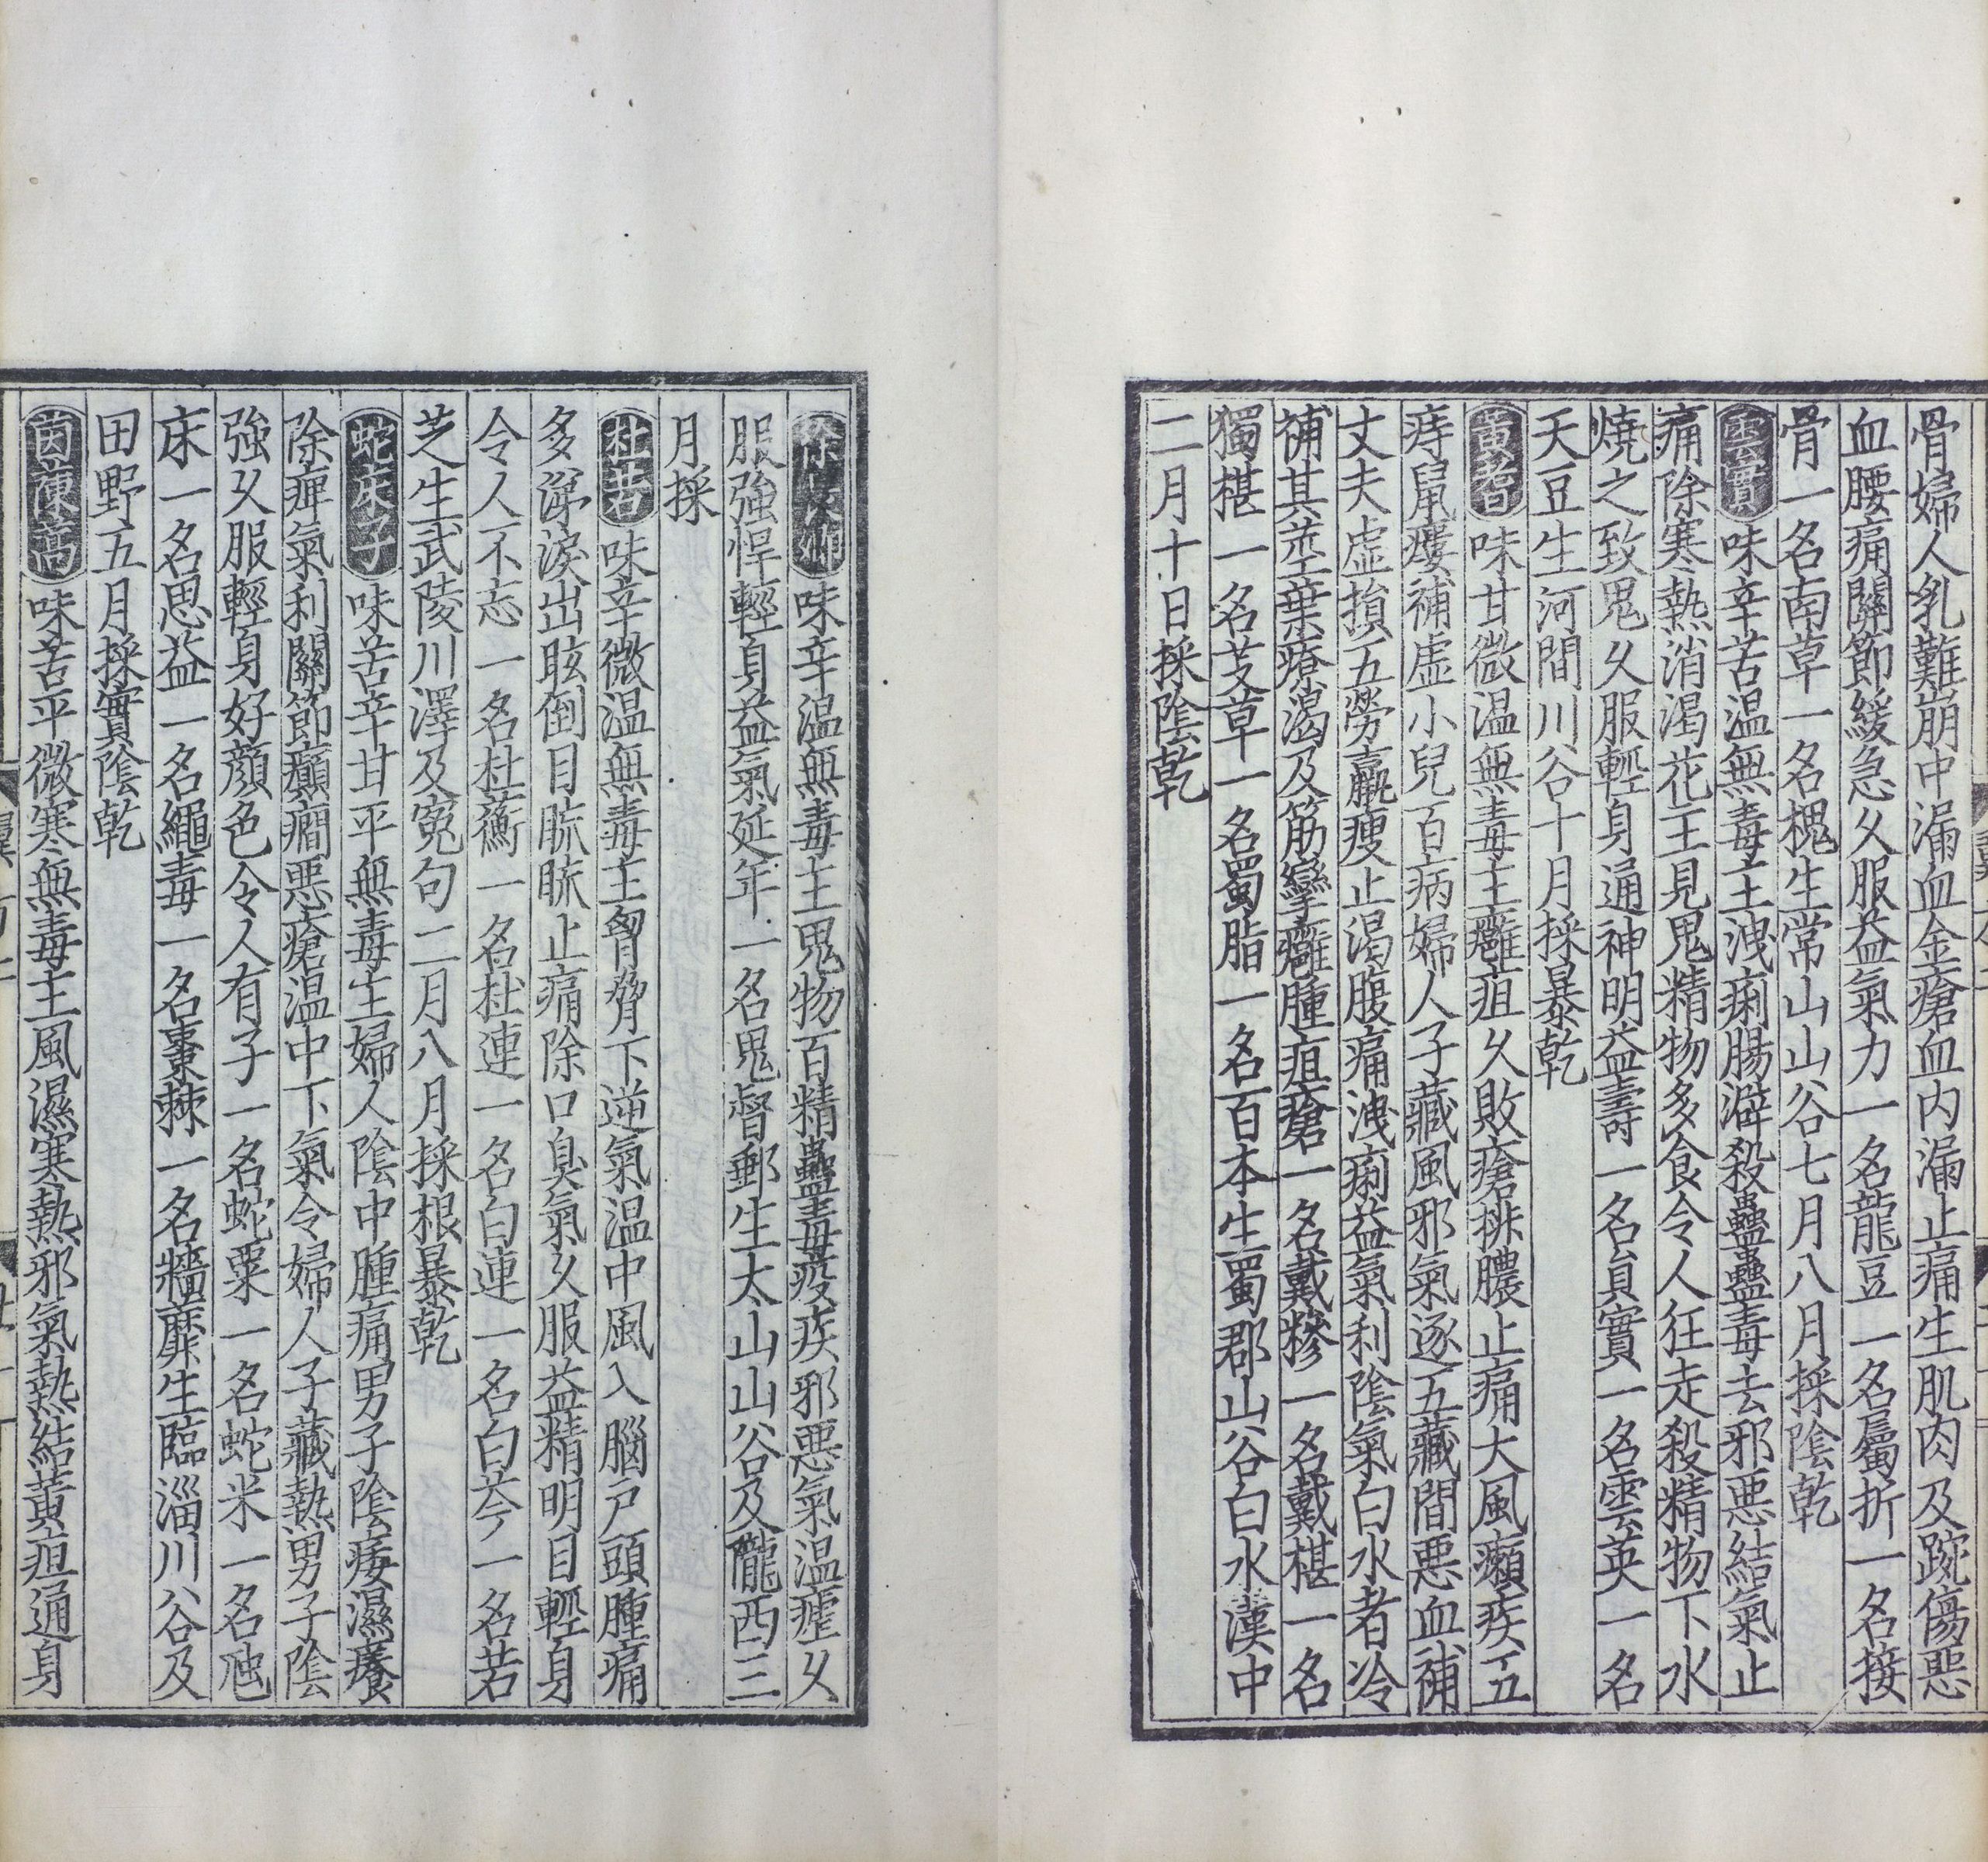 骨婦人乳難崩中漏血金瘡血内漏止痛生肌肉及踠傷惡
血腰痛關節緩急久服益氣力一名龍豆一名屬折一名接
骨一名南草一名槐生常山山谷七月八月採陰乾
雲實味辛苦温無毒主洩痢腸澼殺蟲蠱毒去邪惡結氣止
痛除寒熱消渴花主見鬼精物多食令人狂走殺精物下水
燒之致鬼久服輕身通神明益壽一名員實一名雲英一名
天豆生河間川谷十月採暴乾
黃耆味甘微温無毒主癰疽久敗瘡排膿止痛大風癩疾五
痔鼠瘻補虛小兒百病婦人子藏風邪氣逐五藏間惡血補
丈夫虛損五勞羸瘦止渴腹痛洩痢益氣利陰氣白水者冷
補其莖葉療渴及筋攣癰腫疽瘡一名戴糝一名戴椹一名
獨椹一名芰草一名蜀脂一名百本生蜀郡山谷白水漢中
二月十日採陰乾
徐長卿味辛温無毒主鬼物百精蠱毒疫疾邪惡氣温瘧久
服強悍輕身益氣延年一名鬼督郵生太山山谷及隴西三
月採
杜若味辛微温無毒主胷脅下逆氣温中風入腦戸頭腫痛
多涕淚出眩倒目䀮䀮止痛除口臭氣久服益精明目輕身
令人不忘一名杜蘅一名杜連一名白連一名白芩一名若
芝生武陵川澤及寃句二月八月採根暴乾
蛇床子味苦辛甘平無毒主婦人陰中腫痛男子陰痿濕癢
除痺氣利關節癲癇惡瘡温中下氣令婦人子藏熱男子陰
強久服輕身好顏色令人有子一名蛇粟一名蛇米一名虺
床一名思益一名繩毒一名棗棘一名牆蘼生臨淄川谷及
田野五月採實陰乾
茵蔯蒿味苦平微寒無毒主風濕寒熱邪氣熱結黃疸通身